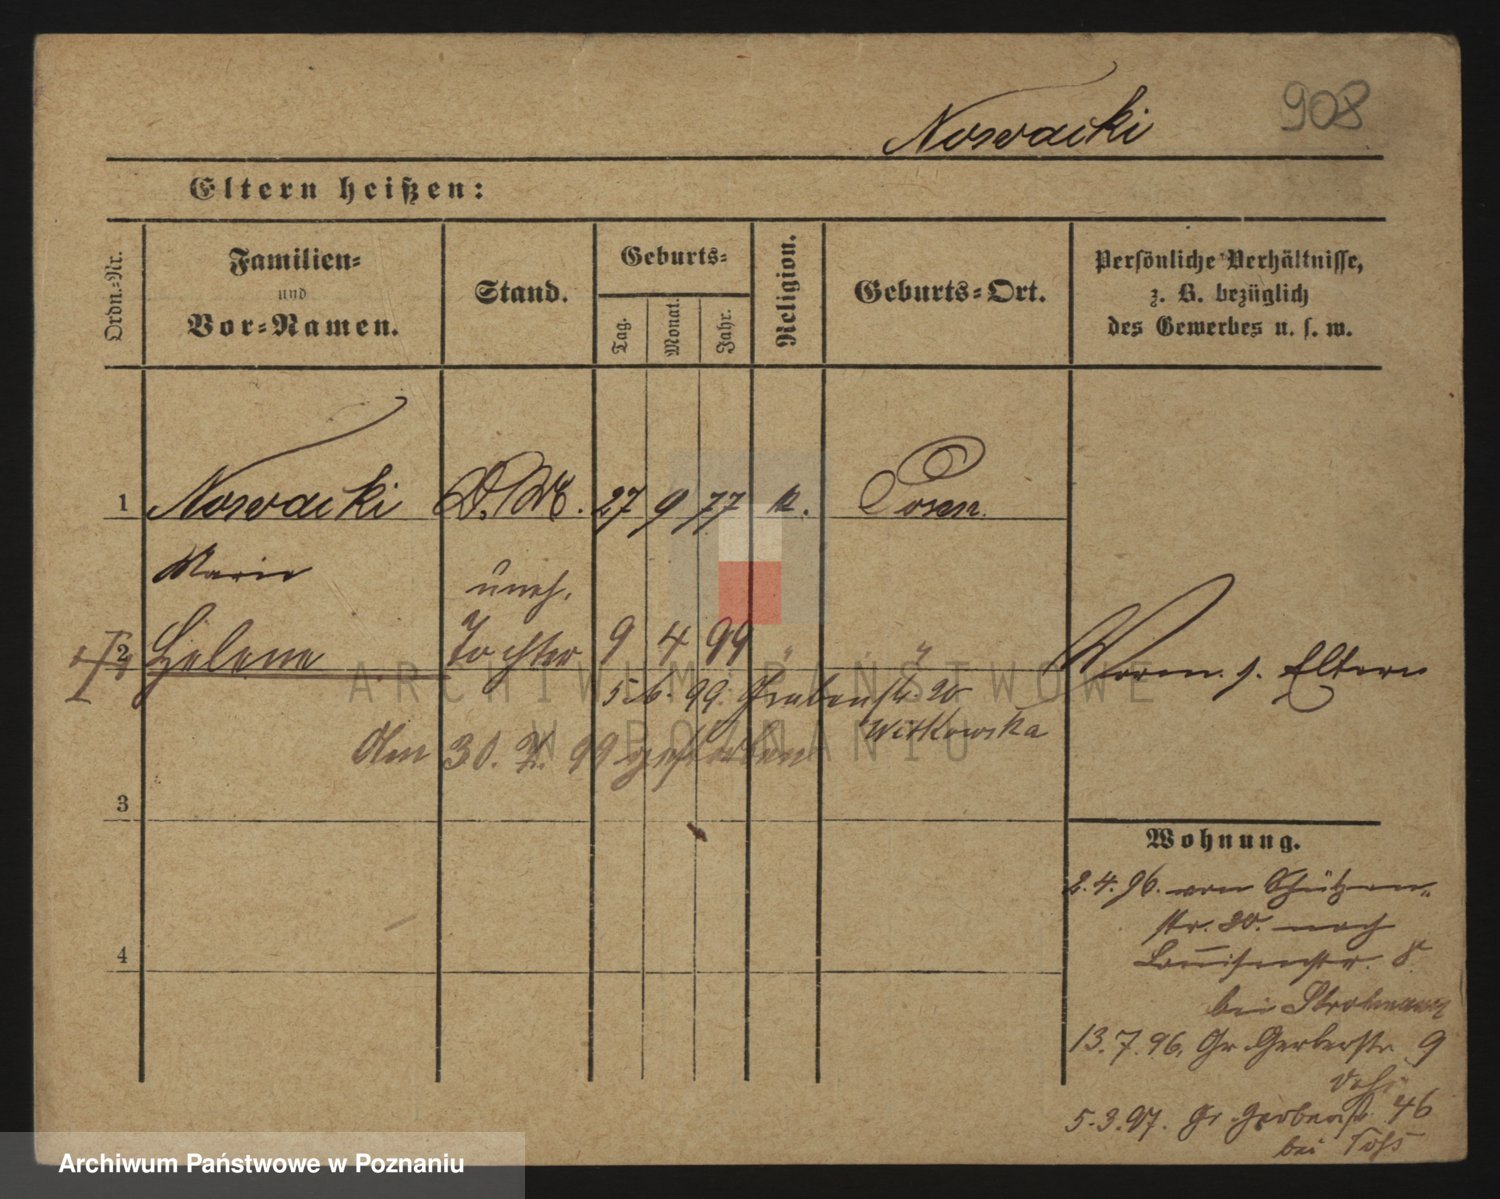 908
Nowacki
Eltern heißen:
Ordn.-Nr.
Familien-
und
Vor-Namen.
Stand.
Geburts-
Tag.
Monat.
Jahr.
Religion.
Geburts-Ort.
Persönliche Verhältnisse,
z. B. bezüglich
des Gewerbes u. s. w.
1 Nowacki D. M. 27 9 77 k. Posen
Marie
uneh.
2 Helene Tochter 9 4 99 " "
Eltern
5.6.99. Grabenstr. 20
Witkowska
Am 30. 7. 99 gestorben
3
4
Wohnung.
2.4.96. von Schützen-
str. 20. nach
Louisenstr. 8.
bei
13.7.96. Gr Gerberstr. 9
5.3.97. Gr Gerberstr. 46
bei
ARCHIWUM PAŃSTWOWE
W POZNANIU
Archiwum Państwowe w Poznaniu